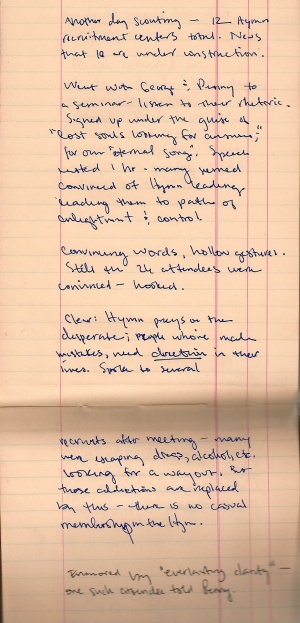 Another day scouting – 12 Hymn
recruitment centers total. News
that 10 are under construction.
Went with George & Penny to
a seminar – listen to their rhetoric.
Signed up under the guise of
"Lost souls looking for answers,"
for our "eternal song". Speech
lasted 1 hr. – many seemed
convinced of Hymn leading
leading them to paths of
enlightment & control
Convincing words, hollow gestures.
Still the 24 attendees were
convinced – hooked.
Clear: Hymn preys on the
desperate; people who've made
mistakes, need direction in their
lives. Spoke to several
recruits after meeting – many
were escaping drugs, alcohol, etc.
Looking for a way out. But
those addictions are replaced
by this – there is no casual
membership in the Hymn.
Enamored by "everlasting clarity" –
one such attendee told Penny.